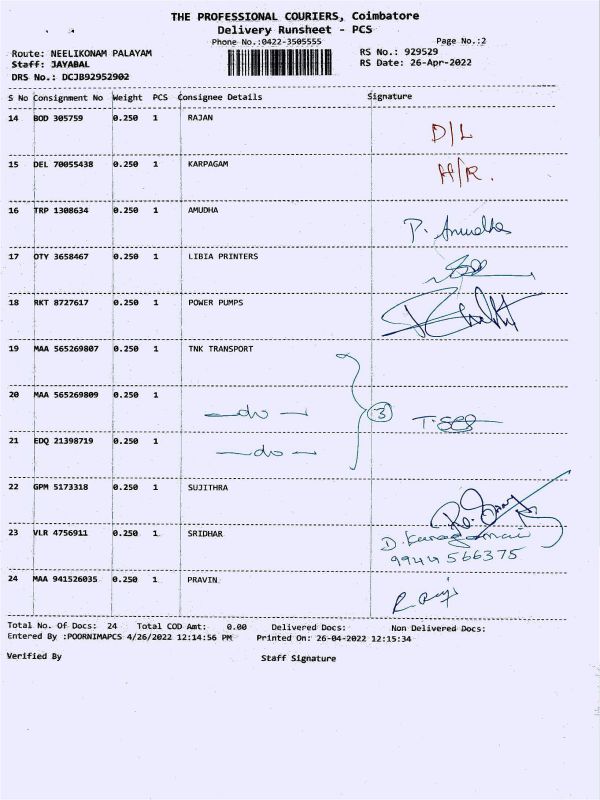 THE PROFESSIONAL COURIERS, Coimbatore
Delivery Runsheet - PCS
Phone No.:0422-3505555 Page No.:2
Route: NEELIKONAM PALAYAM RS No.: 929529
Staff: JAYABAL RS Date: 26-Apr-2022
DRS No.: DCJB92952902
S No Consignment No Weight PCS Consignee Details Signature
14 BOD 305759 0.250 1 RAJAN D/L
15 DEL 70055438 0.250 1 KARPAGAM H/R.
16 TRP 1308634 0.250 1 AMUDHA P. Amudha
17 OTY 3658467 0.250 1 LIBIA PRINTERS
18 RKT 8727617 0.250 1 POWER PUMPS
19 MAA 565269807 0.250 1 TNK TRANSPORT
20 MAA 565269809 0.250 1 —do— 3
21 EDQ 21398719 0.250 1 —do—
22 GPM 5173318 0.250 1 SUJITHRA
23 VLR 4756911 0.250 1 SRIDHAR D.
9944566375
24 MAA 941526035 0.250 1 PRAVIN
Total No. Of Docs: 24 Total COD Amt: 0.00 Delivered Docs: Non Delivered Docs:
Entered By :POORNIMAPCS 4/26/2022 12:14:56 PM Printed On: 26-04-2022 12:15:34
Verified By Staff Signature